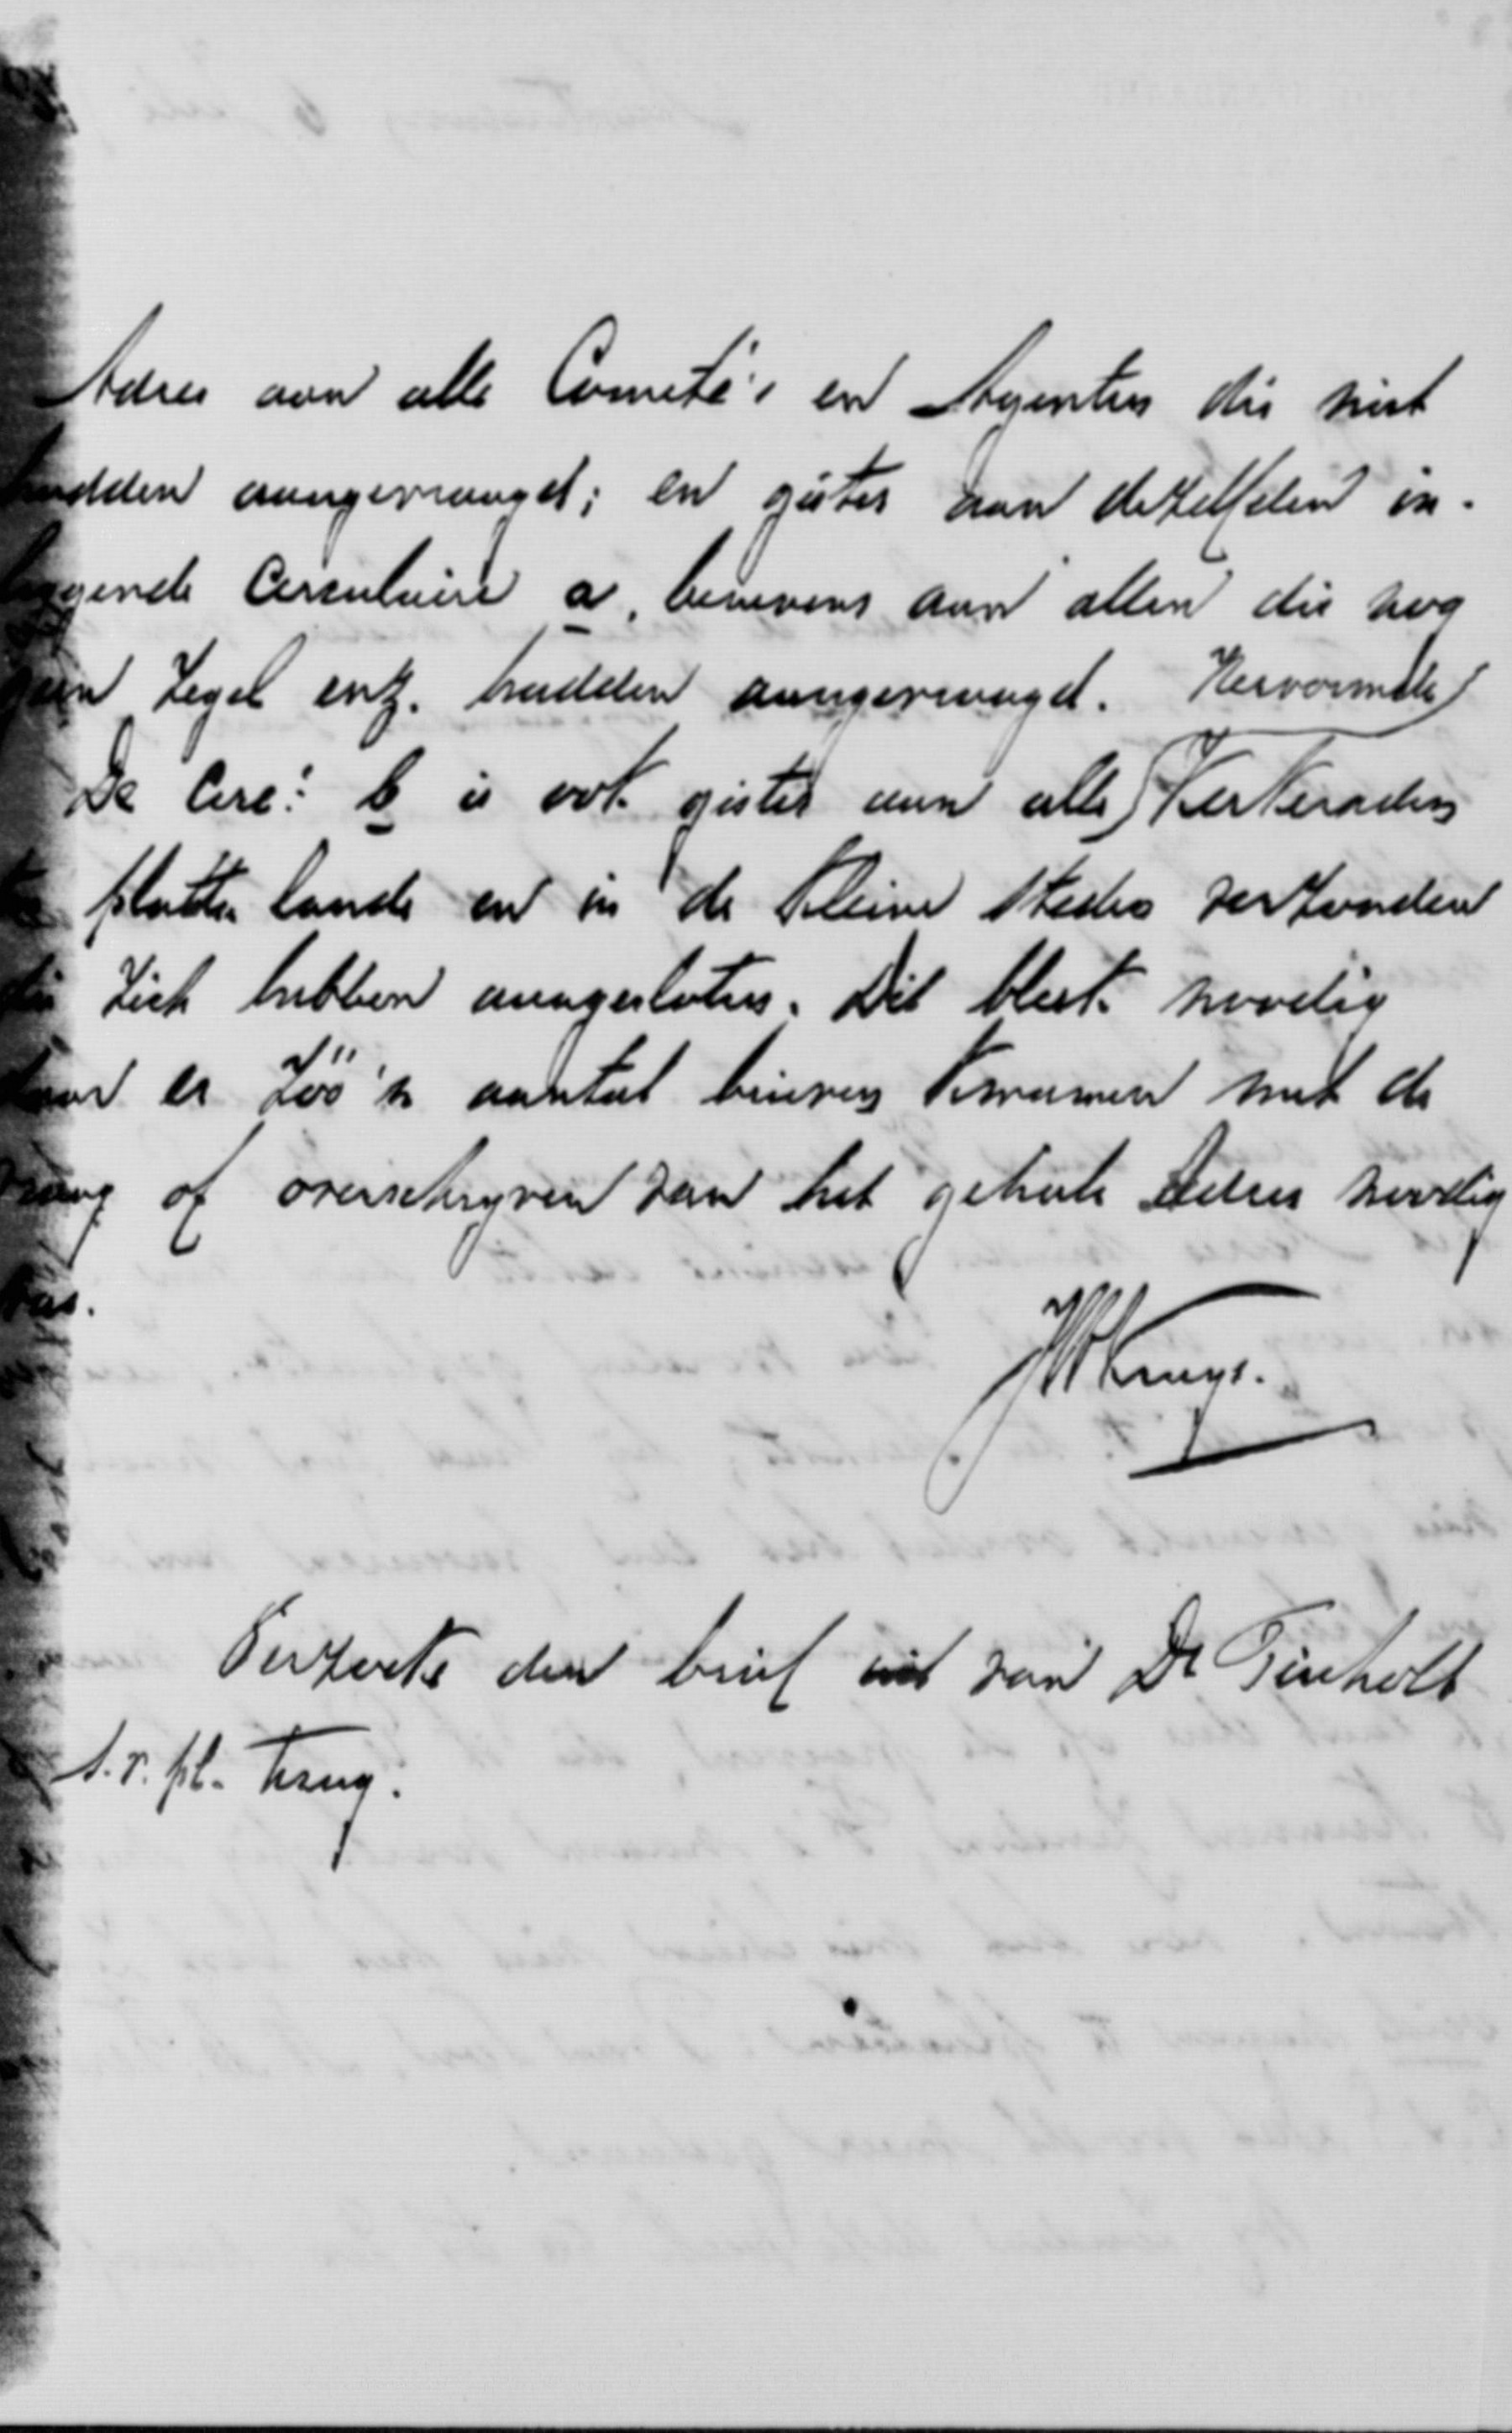 Adres aan alle Comité's en Agenten die niet
hadden aangevraagd; en gister aan dezelfden in-
liggende Circulaire a, benevens aan allen die nog
geen Zegel enz. hadden aangevraagd. Hervormde
De Circ: b is ook gister aan alle Kerkeraden
platte lande en in de kleine steden verzonden
die zich hebben aangesloten. Dit bleek noodig
daar er zóó'n aantal brieven kwamen met de
vraag of overschrijven van het geheele Adres noodig
was.
JW Kruyt.
Verzoeke den brief uit van Dr
s.v.pl. terug.